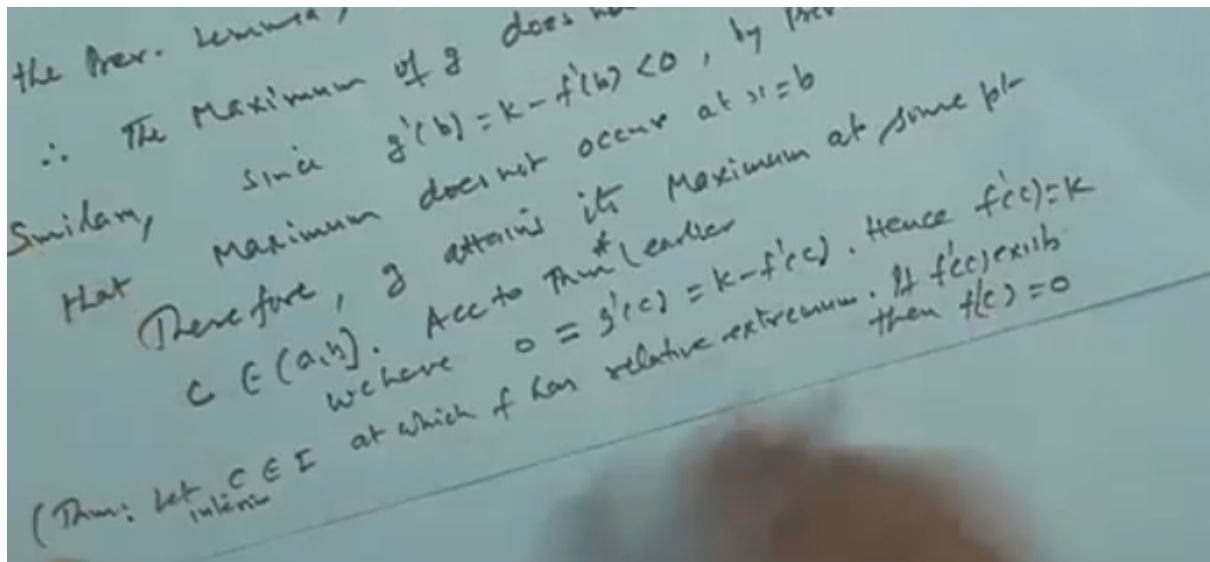 the Prev. Lemma,
∴ The Maximum of g does
Similarly, since g'(b) = k - f'(b) < 0, by Prev
that Maximum does not occur at x = b
Therefore, g attains its Maximum at some pt
c ∈ (a,b). Acc to Thm* (earlier
we have 0 = g'(c) = k - f'(c). Hence f'(c) = k
(Thm: Let c ∈ I at which f has relative extremum. If f'(c) exists
interior then f(c) = 0